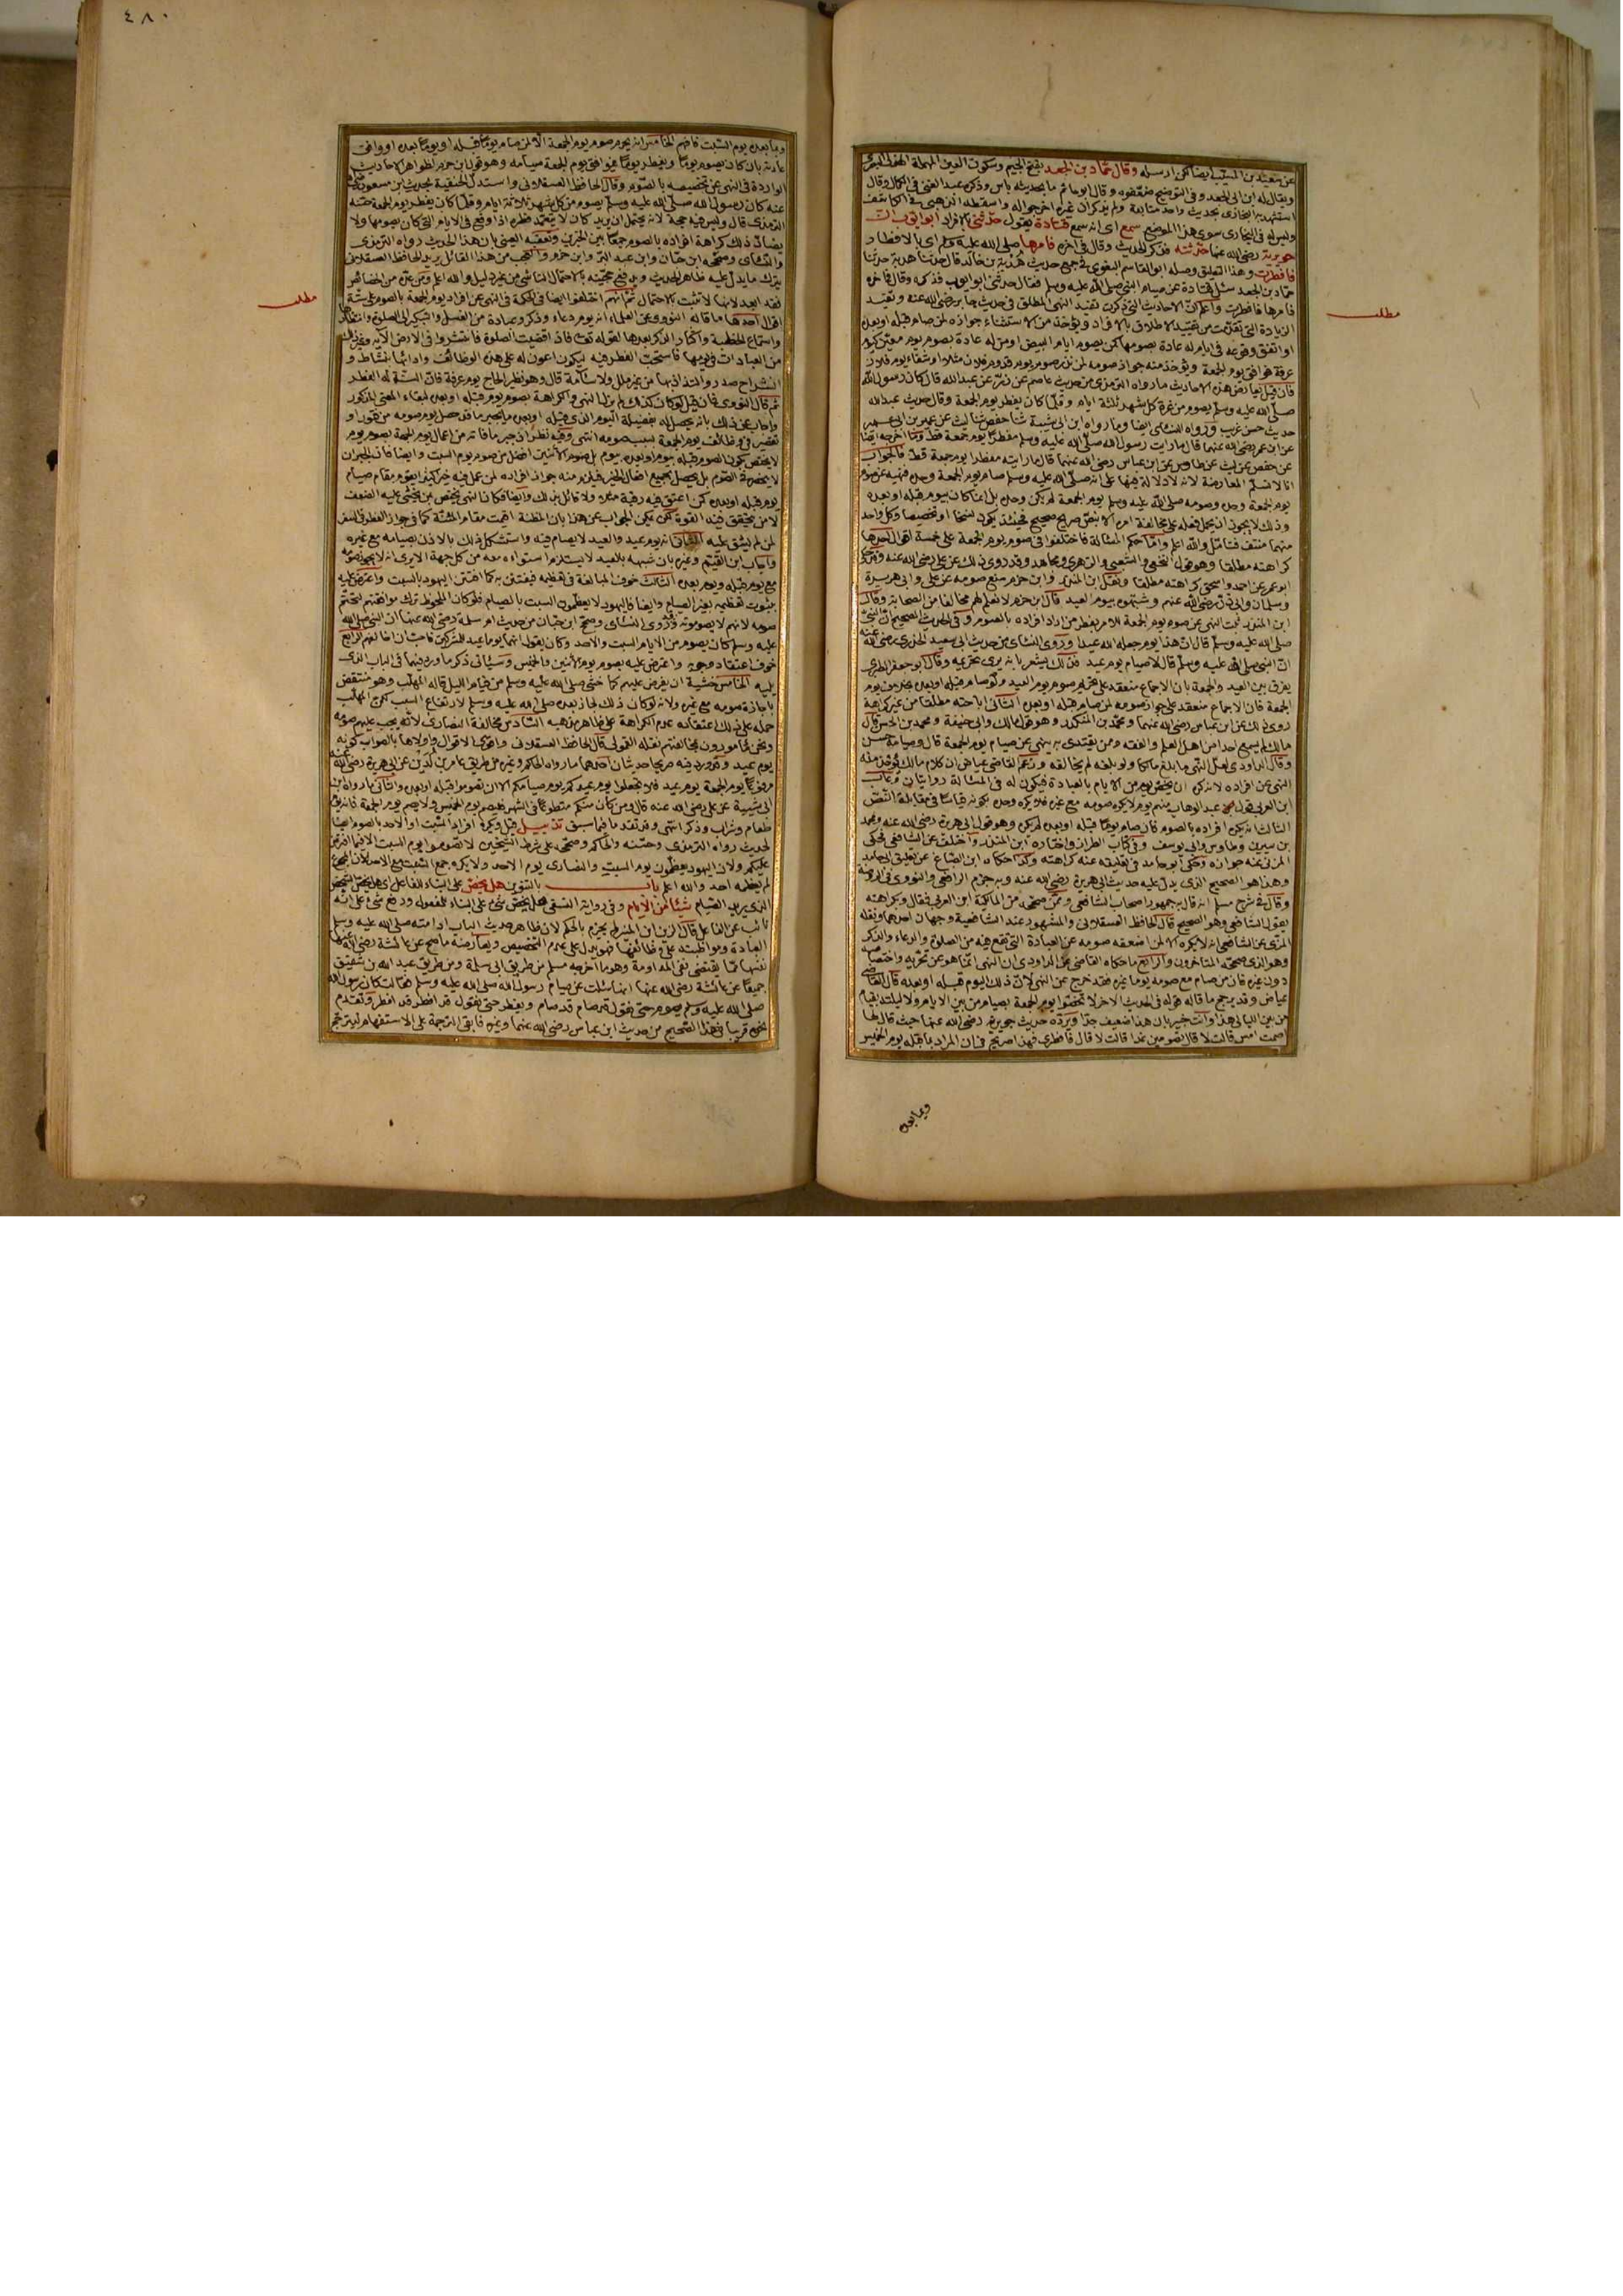 عن سعيد بن المسيب ايضا لكن ارسله وقال حماد بن الجعد بفتح الجيم وسكون العين المهملة الهذلى البصرى
ويقال له ابن ابى الجعد وفى التوضيح ضعّفوه وقال ابوحاتم ما بحديثه باس وذكره عبد الغنى فى الكمال وقال
استشهد به البخارى بحديث واحد متابعة ولم يذكر ان غيره اخرج له واسقطه الذهبى فى الكاشف
وليس له فى البخارى سوى هذا الموضع سمع اى انه سمع قتادة يقول حدّثنى بالافراد ابو ايوب ان
جويرية رضى الله عنها حدّثته فذكر الحديث وقال فى آخره فامرها صلى الله عليه وسلم اى بالافطار
فافطرت وهذا التعليق وصله ابوالقاسم البغوى فى جمع حديث هدبة بن خالد قال حدثنا هدبة حدثنا
حماد بن الجعد سئل قتادة عن صيام النبى صلى الله عليه وسلم فقال حدثنى ابو ايوب فذكره وقال فى آخره
فامرها فافطرت واعلم انّ الاحاديث التى ذكرت تقيد النهى المطلق فى حديث جابر رضى الله عنه وتقيد
الزيادة التى تقدّمت من تقييد الاطلاق بالافراد ويؤخذ من الاستثناء جوازه لمن صام قبله او بعده
او اتفق وقوعه فى ايام له عادة بصومها كمن يصوم ايام البيض او من له عادة بصوم يوم معيّن كيوم
عرفة فوافق يوم الجمعة ويؤخذ منه جواز صومه لمن نذر صوم يوم قدوم فلان مثلا او شفاء يوم فلان
فان قيل يعارض هذه الاحاديث ما رواه الترمذى من حديث عاصم عن زرّ عن عبدالله قال كان رسول الله
صلى الله عليه وسلم يصوم من غرّة كل شهر ثلثة ايام وقلّ ما كان يفطر يوم الجمعة وقال حديث عبدالله
حديث حسن غريب ورواه النسائى ايضا وما رواه ابن ابى شيبة ثنا حفص ثنا ليث عن عمير بن ابى عمير
عن ابن عمر رضى الله عنهما قال ما رايت رسول الله صلى الله عليه وسلم مفطرا يوم جمعة قطّ وما اخرجه ايضا
عن حفص عن ليث عن طاوس عن ابن عباس رضى الله عنهما قال ما رايته مفطرا يوم جمعة قط فالجواب
انا لا نسلّم المعارضة لانه لا دلالة فيها على انه صلى الله عليه وسلم صام يوم الجمعة وحده فنهيه عن صوم
يوم الجمعة وحده وصومه صلى الله عليه وسلم يوم الجمعة لم يكن وحده بل انما كان بيوم قبله او بعده
وذلك لا يجوز ان يحمل فعله على مخالفة امره الا بنصّ صريح صحيح فحينئذ يكون نسخا او تخصيصا وكل واحد
منهما منتف فتامّل والله اعلم وامّا حكم المسألة فاختلفوا فى صوم يوم الجمعة على خمسة اقوال احدها
كراهته مطلقا وهو قول النخعى والشعبى والزهرى ومجاهد وقد روى ذلك عن على رضى الله عنه وقد ذكر
ابو عمر عن احمد واسحق كراهته مطلقا ونقل ابن المنذر وابن حزم منع صومه عن على وابى هريرة
وسلمان وابى ذرّ رضى الله عنهم وشبّهوه بيوم العيد قال ابن حزم لا نعلم لهم مخالفا من الصحابة وقال
ابن المنذر ثبت النهى عن صوم يوم الجمعة للامر بفطر من اراد افراده بالصوم وفى الحديث الصحيح ان النبى
صلى الله عليه وسلم قال ان هذا يوم جعله الله عيدا وروى النسائى من حديث ابى سعيد الخدرى رضى الله عنه
انّ النبى صلى الله عليه وسلم قال لا صيام يوم عيد فذلك يشعر بانه يرى بتحريمه وقال ابو جعفر الطبرى
يفرق بين العيد والجمعة بان الاجماع منعقد على تحريم صوم يوم العيد ولو صام قبله او بعده بخلاف يوم
الجمعة فان الاجماع منعقد على جواز صومه لمن صام قبله او بعده الثانى اباحته مطلقا من غير كراهة
روى ذلك عن ابن عباس رضى الله عنهما ومحمد بن المنكدر وهو قول مالك وابى حنيفة ومحمد بن الحسن قال
مالك لم يسمع احدا من اهل العلم والفقه ومن يقتدى به ينهى عن صيام يوم الجمعة قال وصيامه حسن
وقال الداودى لعل النهى ما بلغ مالكا ولو بلغه لم يخالفه وزعم القاضى عياض ان كلام مالك يؤخذ منه
النهى عن افراده لانه كره ان يخصّ يوم من الايام بالعبادة فيكون له فى المسئالة روايتان وعاب
ابن العربى قول عبد الوهاب منهم يوم لا يكره صومه مع غيره فلا يكره وحده بكونه قياسا فى مقابلة النصّ
الثالث انه يكره افراده بالصوم فان صام يوما قبله او بعده لم يكره وهو قول ابى هريرة رضى الله عنه ومحمد
بن سيرين وطاوس وابى يوسف وفى كتاب الطراز واختاره ابن المنذر واختلف عن الشافعى فحكى
المزنى عنه جوازه وحكى ابو حامد فى تعليقه عنه كراهته وكذا حكاه ابن الصباغ عن تعليق ابى حامد
وهذا هو الصحيح الذى يدلّ عليه حديث ابى هريرة رضى الله عنه وبه جزم الرافعى والنووى فى الروضة
وقال فى شرح مسلم انه قال به جمهور اصحاب الشافعى وممن صحّحه من المالكية ابن العربى فقال وبكراهته
يقول الشافعى وهو الصحيح قال الحافظ العسقلانى والمشهور عند الشافعية وجهان احدهما ونقله
المزنى عن الشافعى انه لا يكره الا لمن اضعفه صومه عن العبادة التى تقع فيه من الصلوة والدعاء والذكر
وهو الذى صحّحه المتاخرون والرابع ما حكاه القاضى عن الداودى ان النهى انما هو عن تحرّيه واختصاصه
دون غيره فان من صام مع صومه يوما غيره فقد خرج عن النهى لانّ ذلك اليوم قبله او بعده قال القاضى
عياض وقد يرجح ما قاله قوله فى الحديث الاخر لا تخصّوا يوم الجمعة بصيام من بين الايام ولا ليلته بقيام
من بين الليالى هذا وانت خبير بان هذا ضعيف جدّا ويردّه حديث جويرية رضى الله عنها حيث قال لها
اصمت امس قالت لا قال تصومين غدا قالت لا قال فافطرى فهذا صريح فى ان المراد بما قبله يوم الخميس
وبما بعده
مطلب
٤٨٠
وبما بعده يوم السّبت فافهم الخامس انه يحرم صوم يوم الجمعة الّا لمن صام يوما قبله او يوما بعده او وافق
عادته بان كان يصوم يوما ويفطر يوما فوافق يوم الجمعة صيامه وهو قول ابن حزم لظواهر الاحاديث
الواردة فى النهى عن تخصيصه بالصّوم وقال الحافظ العسقلانى واستدلّ الحنفية بحديث ابن مسعود رضى الله
عنه كان رسول الله صلى الله عليه وسلم يصوم من كل شهر ثلاثة ايام وقلّ ما كان يفطر يوم الجمعة حسّنه
الترمذى قال وليس فيه حجة لانه يحتمل ان يريد كان لا يتعمّد فطره اذا وقع فى الايام التى كان يصومها ولا
يضادّ ذلك كراهة افراده بالصوم جمعا بين الخبرين وتعقبه العينى بان هذا الحديث رواه الترمذى
والنسائى وصحّحه ابن حبّان وابن عبد البرّ وابن حزم والعجب من هذا القائل يريد الحافظ العسقلانى
يترك ما يدلّ عليه ظاهر الحديث ويدفع حجيّته بالاحتمال الناشى من غير دليل والله اعلم
اقوال احدها ما قاله النووى عن العلماء انه يوم دعاء وذكر وعبادة من الغسل والتبكير الى الصلوة وانتظارها
واستماع الخطبة واكثار الذكر بعدها لقوله تعالى فاذا قضيت الصلوة فانتشروا فى الارض الآية وغير ذلك
من العبادات فى يومها فاستحبّ الفطر فيه ليكون اعون له على هذه الوظائف وادائها بنشاط و
انشراح صدر والتذاذ بها من غير ملل ولا سآمة قال وهو نظير الحاج يوم عرفة فانّ السنّة له الفطر
ثم قال النووى فان قيل لو كان كذلك لم يزل النهى والكراهة بصوم يوم قبله او بعده لبقاء المعنى المذكور
واجاب عن ذلك بانه يحصل له بفضيلة اليوم الذى قبله او بعده ما يجبر ما قد حصل يوم صومه من فتور او
تقصير فى وظائف يوم الجمعة بسبب صومه انتهى وفيه نظر
لا يختصّ بكون الصوم قبله بيوم او بعده بيوم بل صوم الاثنين افضل من صوم يوم السبت وايضا فان الجبران
لا ينحصر فى الصّوم بل يحصل بجميع افعال الخير فيلزم منه جواز افراده لمن عمل فيه خيرا كثيرا يقوم مقام صيام
يوم قبله او بعده كمن اعتق فيه رقبة مثلا ولا قائل بذلك وايضا فكان النهى يختصّ بمن يخشى عليه الضعف
لا من يتحقّق فيه القوّة لكن يمكن الجواب عن هذا بان المظنّة اقيمت مقام المئنّة كما فى جواز الفطر فى السفر
لمن لم يشق عليه الثانى انه يوم عيد والعيد لا يصام فيه واستشكل ذلك بالاذن بصيامه مع غيره
واجاب ابن القيّم وغيره بان شبهه بالعيد لا يستلزم استواءه معه من كل جهة الا يرى انه لا يجوز صومه
مع يوم قبله ويوم بعده الثالث خوف المبالغة فى تعظيمه فيفتتن به كما افتتن اليهود بالسبت واعترض عليه
بثبوت تعظيمه بغير الصيام وايضا فاليهود لا يعظّمون السبت بالصيام فلو كان الملحوظ ترك موافقتهم لتحتّم
صومه لانهم لا يصومونه وقد روى النسائى وصحّح ابن حبان من حديث ام سلمة رضى الله عنها ان النبى صلى الله
عليه وسلم كان يصوم من الايام السبت والاحد وكان يقول انهما يوما عيد للمشركين فاحبّ ان اخالفهم الرابع
خوف اعتقاد وجوبه واعترض عليه بصوم يوم الاثنين والخميس وسيأتى ذكر ما ورد فيهما فى الباب الذى
يليه الخامس خشية ان يفرض عليهم كما خشى صلى الله عليه وسلم من قيام الليل قاله المهلّب وهو منتقض
باجازة صومه مع غيره ولانه لو كان ذلك لجاز بعده صلى الله عليه وسلم لارتفاع السبب لكن المهلّب
حمله على ذلك اعتقاده عدم الكراهة على ظاهر مذهبه السّادس مخالفة النصارى لانّه يجب عليهم صومه
ونحن مأمورون بمخالفتهم نقله القمولى قال الحافظ العسقلانى واقوى الاقوال واولاها بالصواب كونه
يوم عيد وقد ورد فيه صريحا حديثان احدهما ما رواه الحاكم وغيره من طريق عامر بن لُدَيْن عن ابى هريرة رضى الله عنه
مرفوعا يوم الجمعة يوم عيد فلا تجعلوا يوم عيدكم يوم صيامكم الا ان تصوموا قبله او بعده والثانى ما رواه ابن
ابى شيبة عن على رضى الله عنه قال ومن كان منكم متطوّعا فى الشهر فليصم يوم الخميس ولا يصم يوم الجمعة فانه يوم
طعام وشراب وذكر انتهى وقد تقدّم ما فيما سبق تذييل قيل ويكره افراد السّبت او الاحد بالصوم ايضا
لحديث رواه الترمذى وحسّنه والحاكم وصحّحه على شرط الشيخين لا تصوموا يوم السبت الا فيما افترض
عليكم ولان اليهود يعظّمون يوم السبت والنصارى يوم الاحد ولا يكره جمع السّبت مع الاحد لان المجموع
لم يعظمه احد والله اعلم باب بالتنوين هل يخصّ على البناء للفاعل اى هل يخصّ الشخص
الذى يريد الصّيام شيئًا من الايام وفى رواية النسفى هل يُخصّ شئ على البناء للمفعول ورفع شئ على انّه
نائب عن الفاعل قال الزين ابن المنير لم يجزم بالحكم لان ظاهر حديث الباب ادامته صلى الله عليه وسلم
العبادة ومواظبته على وظائفها فهو يدل على عدم التخصيص ويعارضه ما صحّ عن عائشة رضى الله عنها
نفسها ممّا يقتضى نفى المداومة وهو ما اخرجه مسلم من طريق ابى سلمة ومن طريق عبد الله بن شقيق
جميعا عن عائشة رضى الله عنها انها سئلت عن صيام رسول الله صلى الله عليه وسلم فقالت كان رسول الله
صلى الله عليه وسلم يصوم حتى نقول قد صام قد صام ويفطر حتى نقول قد افطر قد افطر وتقدّم
نحوه قريبا فى هذا الصّحيح من حديث ابن عباس رضى الله عنهما وغيره فابقى الترجمة على الاستفهام ليترجّح
مطلب